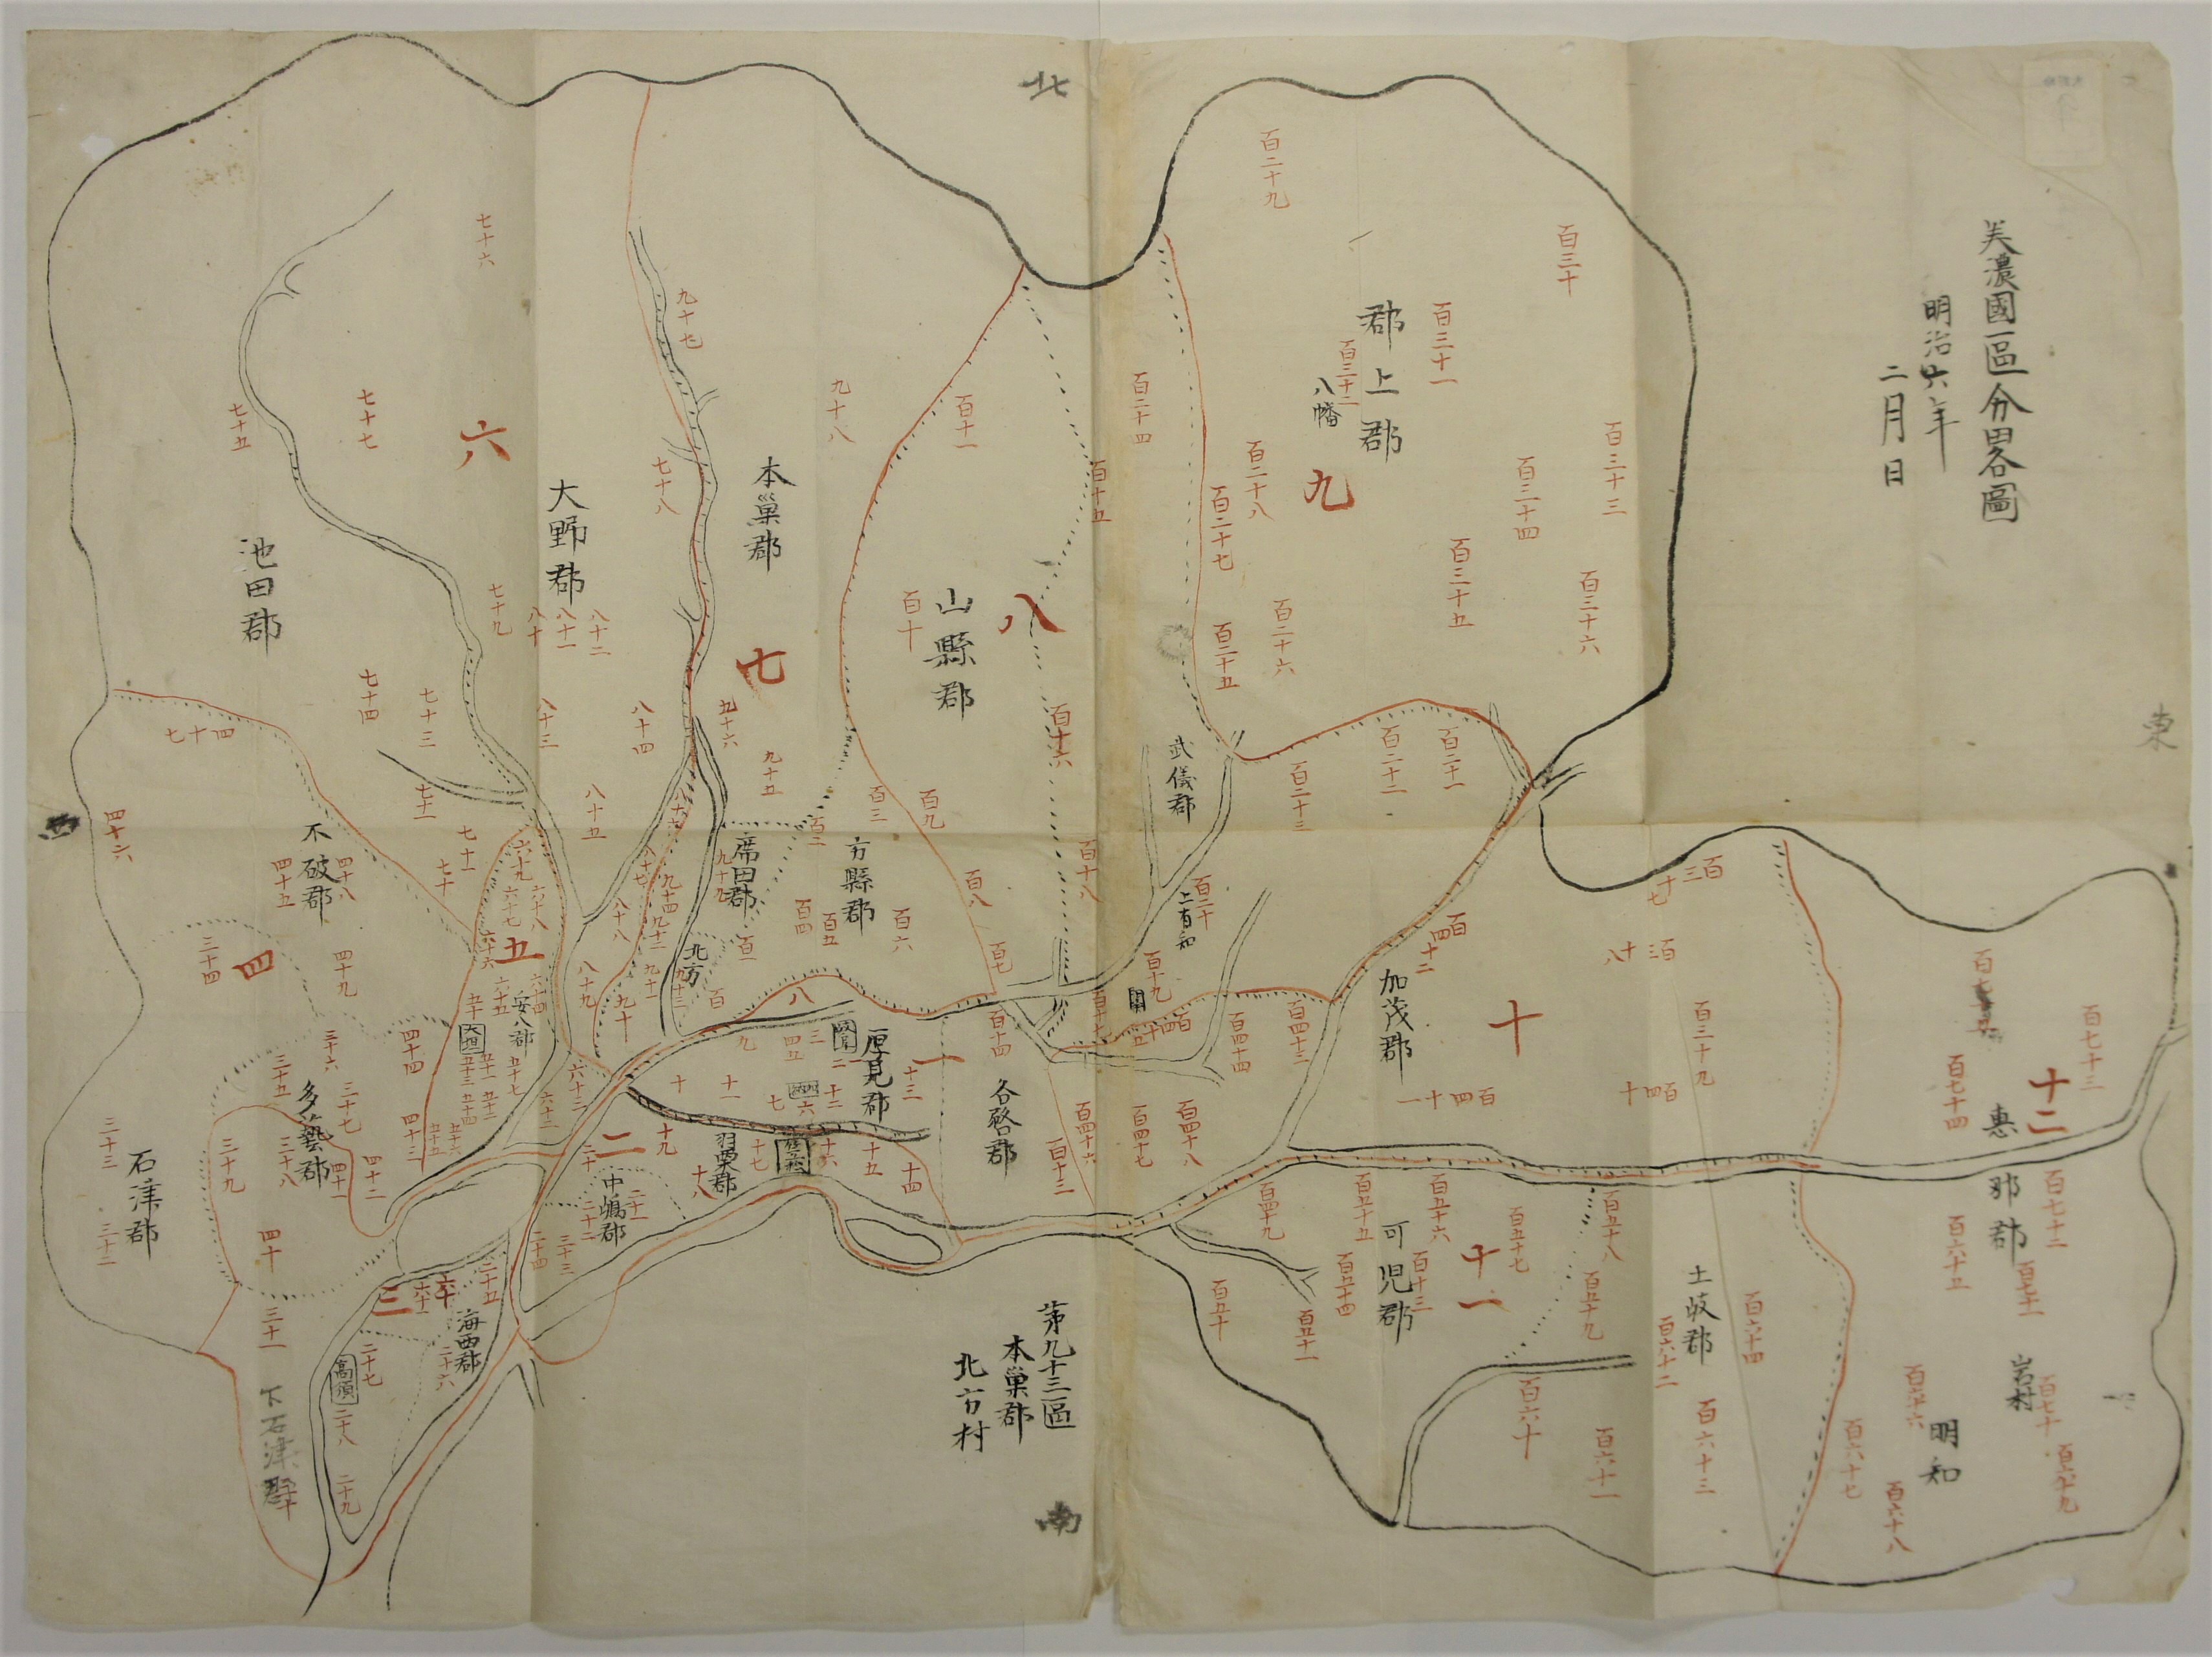 美濃國區分畧圖
明治六年
二月 日
北
東
南
郡上郡
八幡
九
百二十九
百三十
百三十一
百三十二
百三十三
百三十四
百三十五
百三十六
百二十八
百二十七
百二十六
百二十五
百二十四
武儀郡
上有知
百二十
百二十一
百二十二
百二十三
百十九
百十八
百十七
百十六
百十五
八
山縣郡
百十一
百十
百九
百八
百七
百十四
百十三
本巣郡
七
九十七
九十八
九十六
九十五
席田郡
九十九
方縣郡
百三
百二
百四
百五
百六
百一
百
北方
九十四
九十三
九十二
九十一
九十
大野郡
七十八
七十九
八十
八十一
八十二
八十三
八十四
八十五
八十七
八十八
八十九
六
七十六
七十七
七十五
池田郡
七十四
七十三
七十二
七十一
七十
不破郡
四十七
四十六
四十五
四十八
四十九
四
三十四
四十四
四十三
五
六十九
六十八
六十七
六十六
六十五
六十四
安八郡
大垣
五十七
六十三
六十二
多藝郡
三十五
三十六
三十七
三十八
三十九
四十
四十一
四十二
石津郡
三十三
三十二
三十一
下石津郡
三
海西郡
二十五
二十六
二十七
高須
二十八
二十九
二
中嶋郡
二十
二十一
二十二
二十三
二十四
羽栗郡
十九
十八
十七
十六
十五
十四
一
厚見郡
八
九
十
十一
十二
十三
七
六
各務郡
加茂郡
十
百三十七
百三十八
百三十九
百四十
百四十一
百四十二
百四十三
百四十四
百四十五
百四十六
百四十七
百四十八
可児郡
十一
百四十九
百五十
百五十一
百五十三
百五十四
百五十五
百五十六
百五十七
百五十八
百五十九
土岐郡
百六十
百六十一
百六十二
百六十三
百六十四
惠那郡
十二
百七十三
百七十四
百七十二
百七十一
百七十
百六十五
百六十六
百六十七
百六十八
百六十九
岩村
明知
第九十三區
本巣郡
北方村